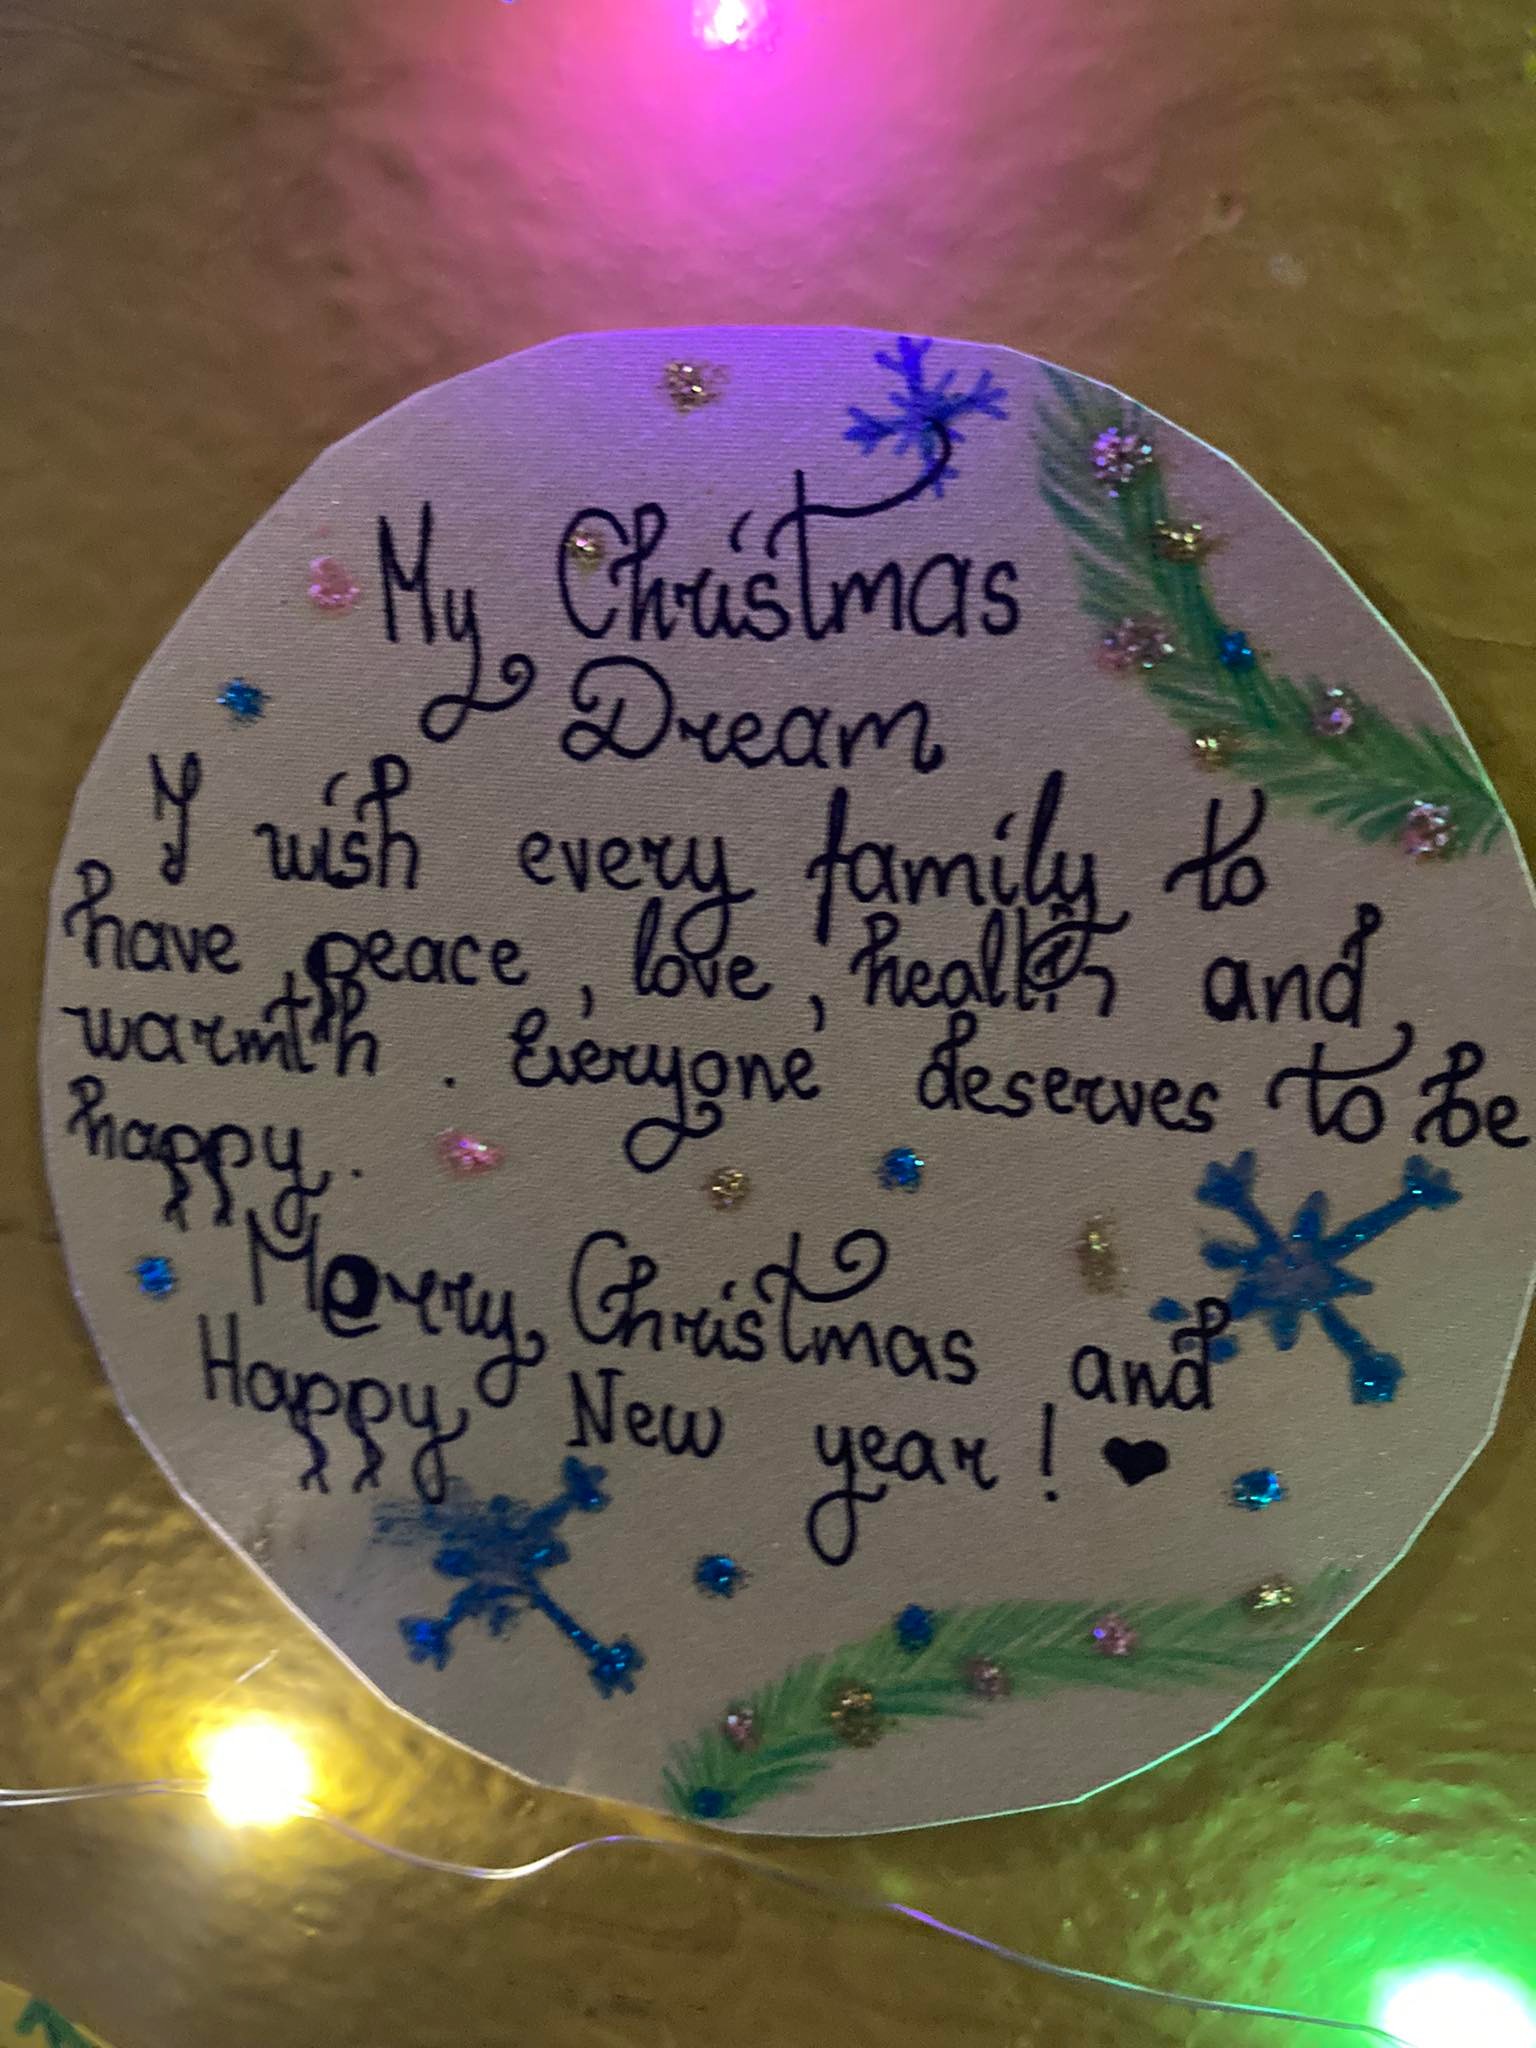 My Christmas
Dream
I wish every family to
have peace, love, health and
warmth. Everyone deserves to be
happy.
Merry Christmas and
Happy New year! ♥